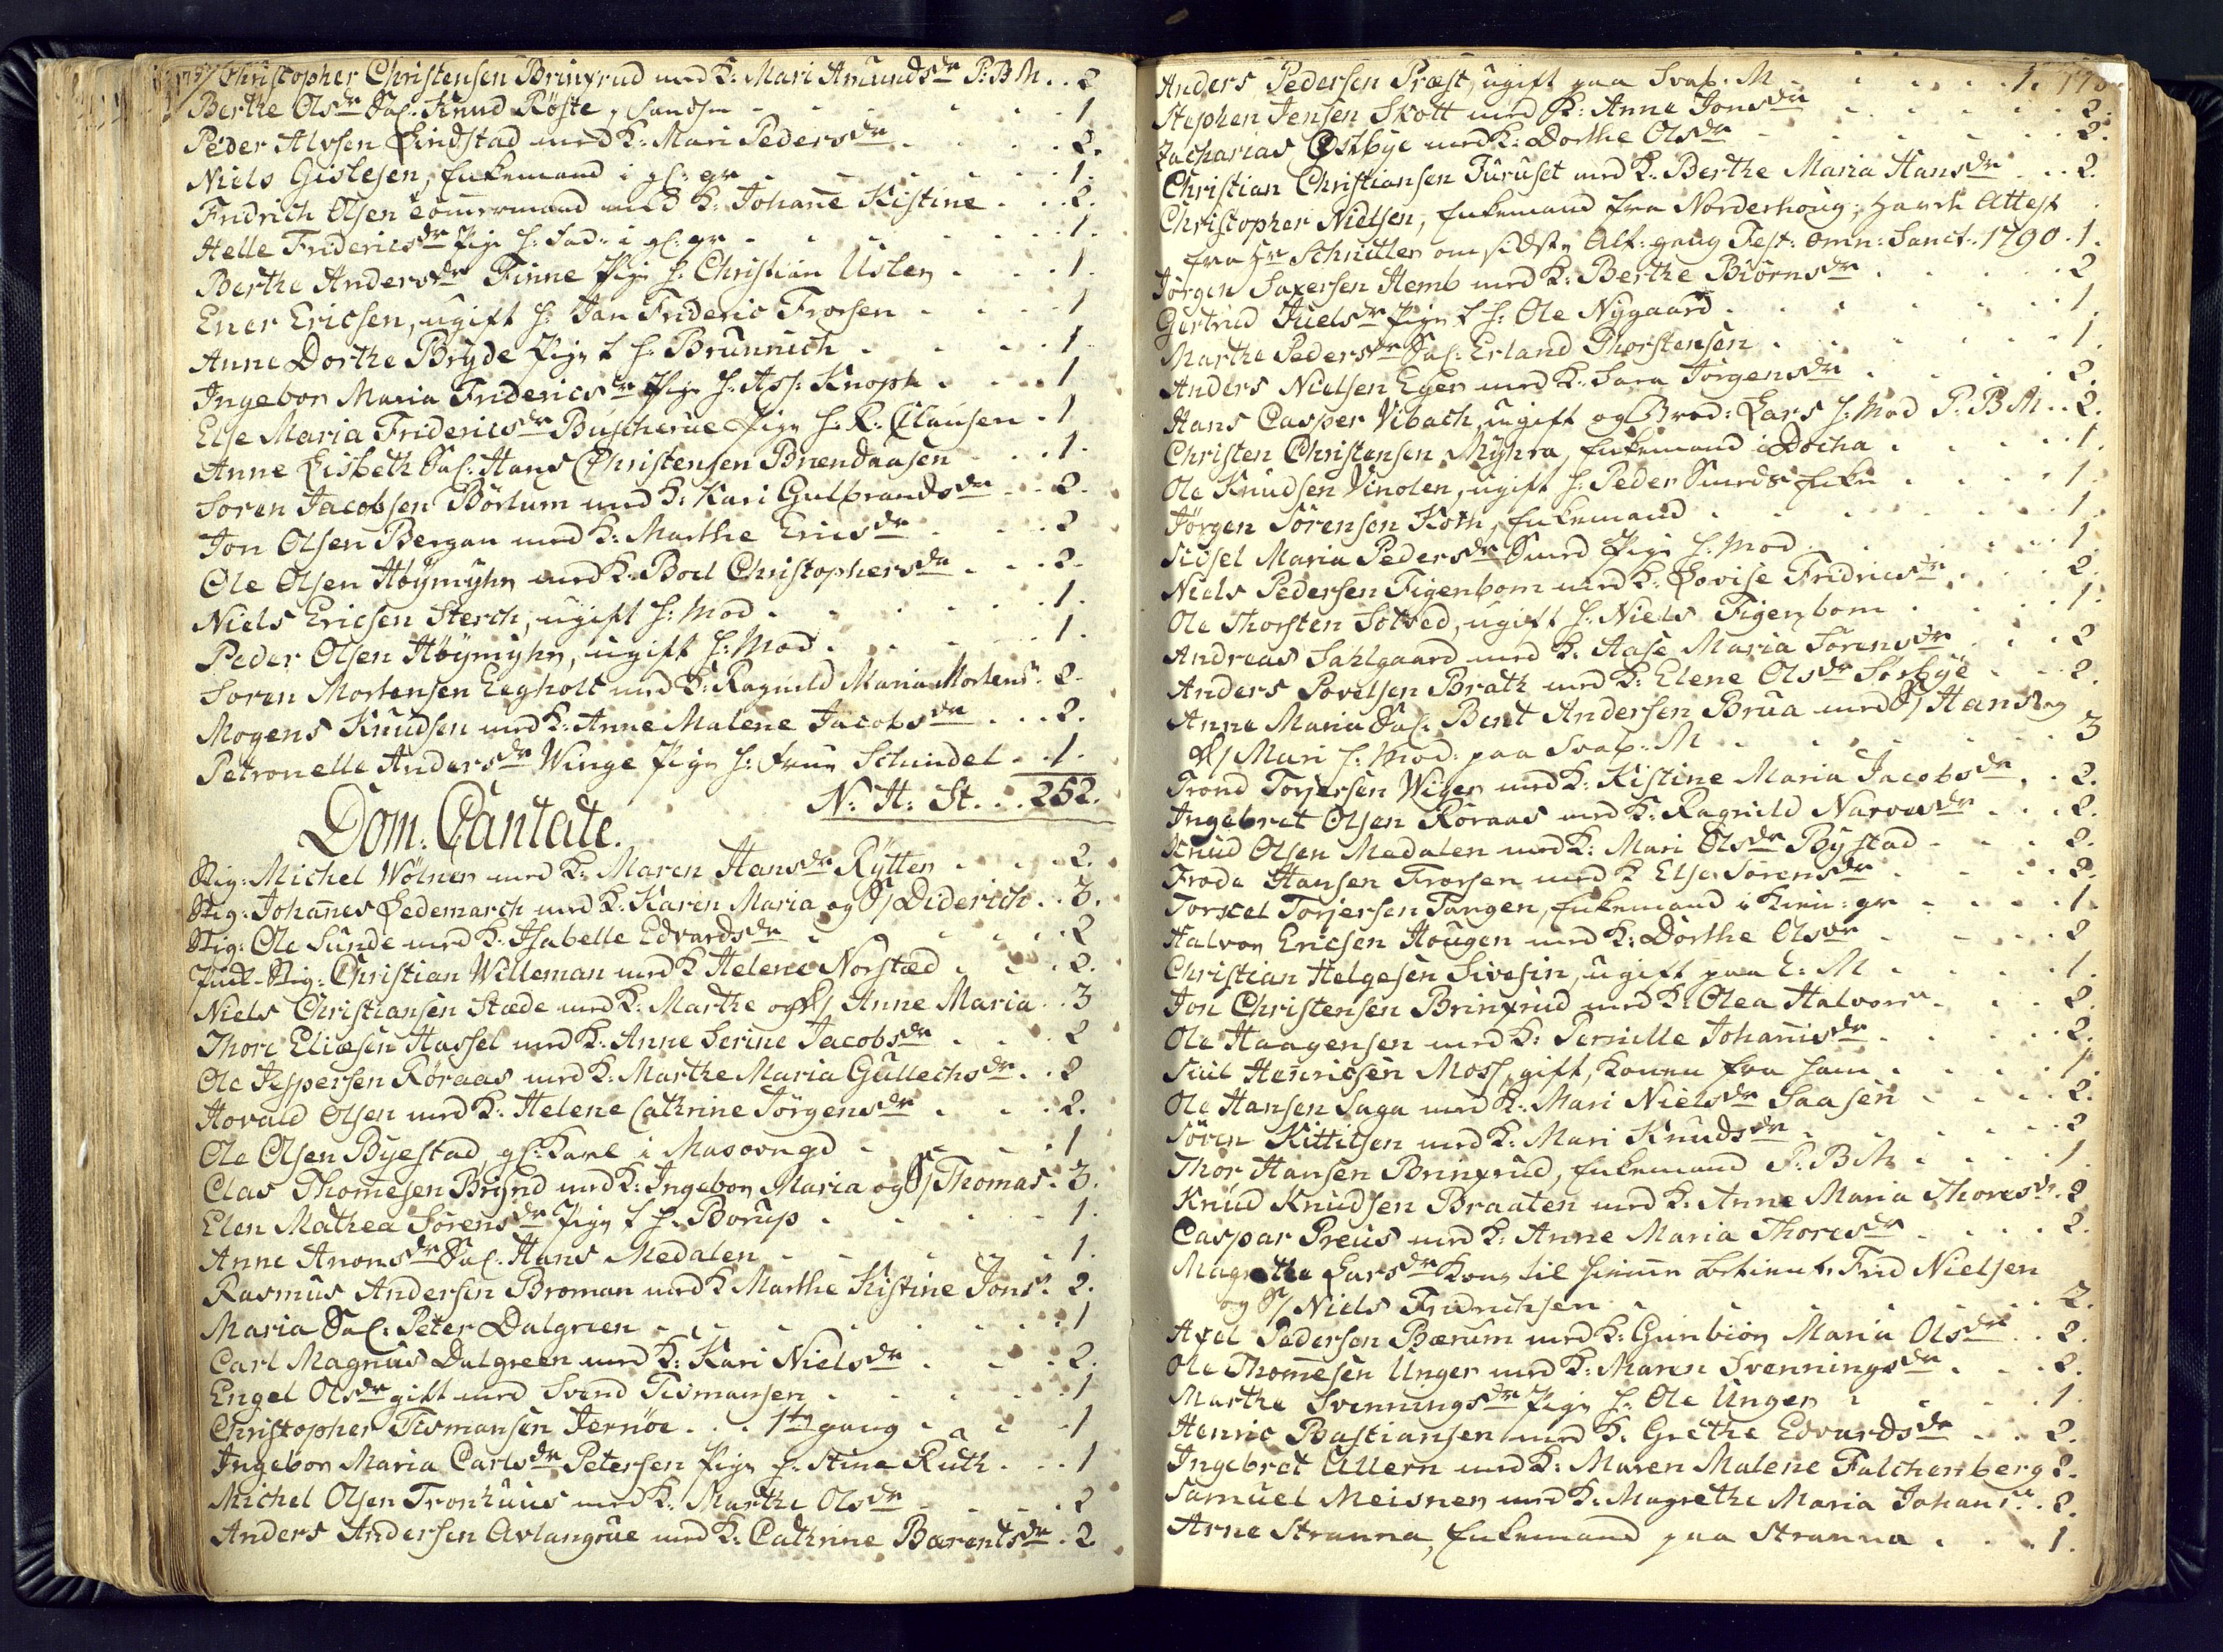 Christopher Christensen Brinxrud med K: Mari Amundsdr P: B M . . 2
Berthe Olsdr Sal. Knud Röste, 1
Peder Alvsen Lindstad med K: Mari Pedersdr . . 2.
Niels Gislesen, Enkemand i gl: gr . . 1.
Fridrich Olsen Tömmermand med K: Johañe Kistine . . 2.
Helle Fridericsdr Pige h: Fad: i gl: gr . . 1.
Berthe Andersdr Finne Pige h: Christian Usler . . 1.
Ener Ericsen, ugift h: Jan Frideric Frorsen . . 1
Anne Dorthe Bryde Pige f h: Brunnich . . 1.
Ingebor Maria Fridericsdr Pige h: Ass: Knoph . . 1
Else Maria Fridericsdr Buscherue Pige h. R: Clausen . 1
Anne Lisbeth Sal: Hans Christensen Brendaasen . . 1.
Soren Jacobsen Börlum med K: Kari Gulbrandsdr . . 2.
Jon Olsen Bergan med K: Marthe Ericsdr . . 2
Ole Olsen Höymyhr med K: Boel Christophersdr . . 2.
Niels Ericsen Sterch, ugift h: Mod . . 1.
Peder Olsen Höymyhr, ugift h: Mod . . 1.
Soren Mortensen Eegholt med K: Ragnild Maria Mortensdr 2.
Mogens Knudsen med K: Anne Malene Jacobsdr . . 2.
Petronelle Andersdr Winge Pige h: Frue Schindel . . 1.
N: H: St. . . 252.
Dom: Cantate.
Stig: Michel Wölner med K: Maren Hansdr Rytter . . 2.
Stig: Johañes Ledemarch med K: Karen Maria og S/ Diderich . . 3.
Stig: Ole Sunde med K: Isabelle Edvardsdr . . 2
Stig: Christian Willeman med K Helene Norstæd . . 2.
Niels Christiansen Stæde med K: Marthe og D/ Anne Maria . . 3
Thore Eliæsen Hassel med K: Anne Serine Jacobsdr . . 2
Ole Jespersen Röraas med K: Marthe Maria Gullechsdr . . 2
Hovald Olsen med K: Helene Cathrine Jörgensdr . . 2.
Ole Olsen Byestad, gl: Karl i Masovngd . . 1
Clas Thomesen Brynd med K: Ingebor Maria og S/ Thomas . 3.
Elen Mathea Sörensdr Pige f h. Borup . . 1.
Anne Aronsdr Sal. Hans Medalen . . 1.
Rasmus Andersen Broman med K Marthe Kistine Jonsdr 2.
Maria Sal: Peter Dalgreen . . 1
Carl Magnus Dalgreen med K: Kari Nielsdr . . 2.
Engel Olsdr gift med Svend Tismansen . . 1
Christopher Tismansen Jernöe . . 1te gang . . 1
Ingebor Maria Carlsdr Petersen Pige h: Stine Ruth . . 1
Michel Olsen Tronhuus med K: Marthe Olsdr . . 2
Anders Andersen Avlangrue med K: Cathrine Barentsdr . 2.
Anders Pedersen Præst, ugift paa Svab: M . . 1.
Stephen Jensen Skott med K: Anne Jonsdr . . 2.
Zacharias Östbye med K: Dorthe Olsdr . . 2.
Christian Christiansen Furuset med K: Berthe Maria Hansdr . . 2.
Christopher Nielsen, Enkemand fra Norderhoug, havde Attest
fra Hr Schnitler om sidste Alt: gang Fest: omn: Sanct: 1790 . 1.
Jörgen Saxersen Hemb med K: Berthe Biörnsdr . . 2
Gertrud Juelsdr Pige f h: Ole Nygaard . . 1.
Marthe Pedersdr Sal: Erland Thorstensen . . 1.
Anders Nielsen Eger med K: Sara Jörgensdr . . 2.
Hans Casper Vibach, ugift og Brod: Lars h: Mod P: B M . . 2.
Christen Christensen Myhra, Enkemand i Docka . . 1.
Ole Knudsen Vinolen, ugift h: Peder Smeds Enke . . 1.
Jörgen Sörensen Koth, Enkemand . . 1.
Sidsel Maria Pedersdr Smed Pige h: Mod . . 1.
Niels Pedersen Figenbom med K: Lovise Fridricsdr . . 2.
Ole Thorsten Sölved, ugift h: Niels Figenbom . . 1.
Andreas Sahlgaard med K. Aase Maria Sörensdr . . 2
Anders Povelsen Brath med K: Elene Olsdr Sörbye . . 2.
Anne Maria Sal: Bent Andersen Brua med S/ Hans og
D/ Mari h: Mod: paa Svab: M . . 3
Trond Torjersen Wiger med K: Kistine Maria Jacobsdr . . 2.
Ingebret Olsen Röraas med K: Ragnild Narvesdr . . 2.
Knud Olsen Medalen med K: Mari Olsdr Bystad . . 2.
Frode Hansen Frorsen med K Else Sörensdr . . 2.
Torkel Torjersen Tangen, Enkemand i gr . . 1.
Halvor Ericsen Hougen med K: Dorthe Olsdr . . 2
Christian Helgesen Sivesin, ugift paa L: M . . 1.
Jon Christensen Brinxrud med K: Olea Halvorsdr . . 2.
Ole Haagensen med K: Pernille Johañisdr . . 2.
Henricsen Moss, gift, Konen fra ham . . 1.
Ole Hansen Saga med K: Mari Nielsdr Saasen . . 2.
Sören Kittilsen med K: Mari Knudsdr . . 2
Thor Hansen Brinxrud, Enkemand P: B M . . 1.
Knud Knudsen Braaten med K: Anne Maria Thoresdr . 2
Caspar Preus med K: Anne Maria Thoresdr . . 2.
Magrethe Larsdr Kone til betient Frid Nielsen
og S/ Niels Fridrichsen . . 2.
Axel Pedersen Bærum med K: Gunbiör Maria Olsdr . . 2.
Ole Thomesen Unger med K: Maren Svenningsdr . . 2.
Marthe Svenningsdr Pige h: Ole Unger . . 1.
Henric Bastiansen med K. Grethe Edvardsdr . . 2.
Ingebret Allern med K: Maren Malene Falchenberg 2.
Samuel Meisner med K: Magrethe Maria Johansdr . 2.
Arne Stranna, Enkemand paa Stranna . . 1.